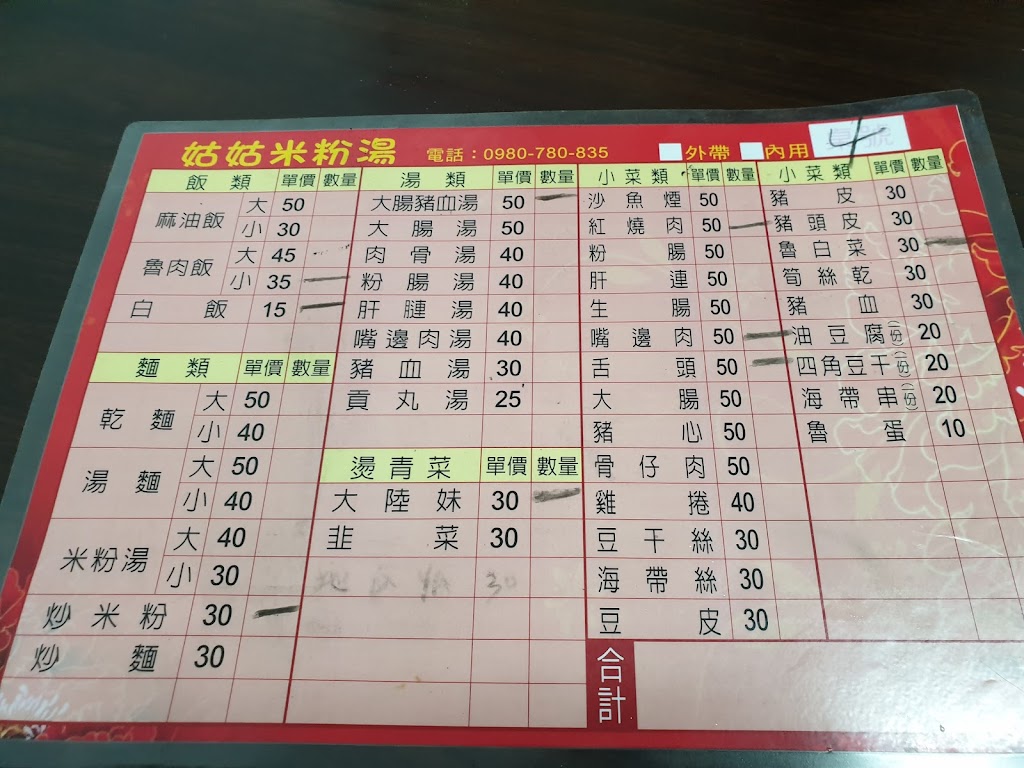 姑姑米粉湯 電話：0980-780-835 外帶 內用 4 號
飯類 單價 數量
麻油飯 大 50
小 30
魯肉飯 大 45
小 35
白飯 15
麵類 單價 數量
乾麵 大 50
小 40
湯麵 大 50
小 40
米粉湯 大 40
小 30
炒米粉 30
炒麵 30
湯類 單價 數量
大腸豬血湯 50
大腸湯 50
肉骨湯 40
粉腸湯 40
肝腱湯 40
嘴邊肉湯 40
豬血湯 30
貢丸湯 25
燙青菜 單價 數量
大陸妹 30
韭菜 30
30
小菜類 單價 數量
沙魚煙 50
紅燒肉 50
粉腸 50
肝連 50
生腸 50
嘴邊肉 50
舌頭 50
大腸 50
豬心 50
骨仔肉 50
雞捲 40
豆干絲 30
海帶絲 30
豆皮 30
小菜類 單價 數量
豬皮 30
豬頭皮 30
魯白菜 30
筍絲乾 30
豬血 30
油豆腐(份) 20
四角豆干(份) 20
海帶串(份) 20
魯蛋 10
合計